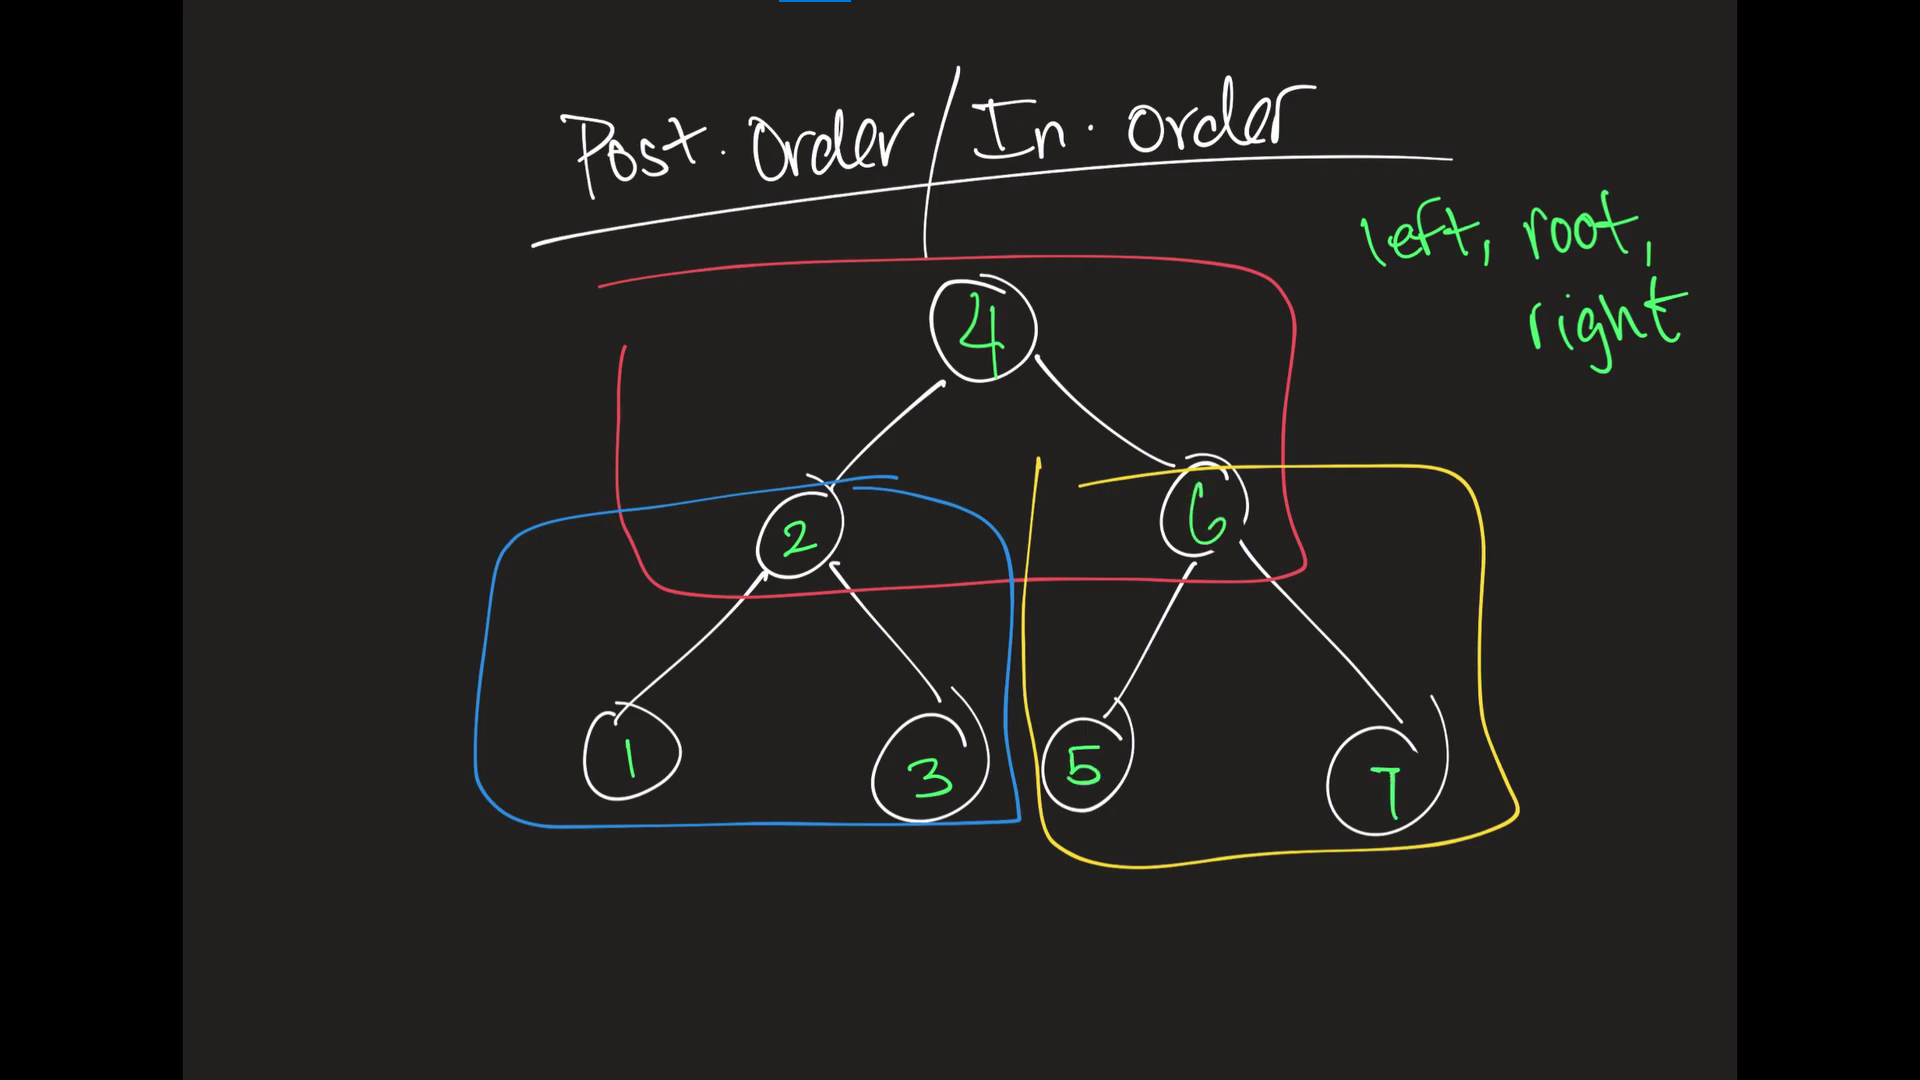 Post. Order / In. Order
left, root,
right
4
2
6
1
3
5
7